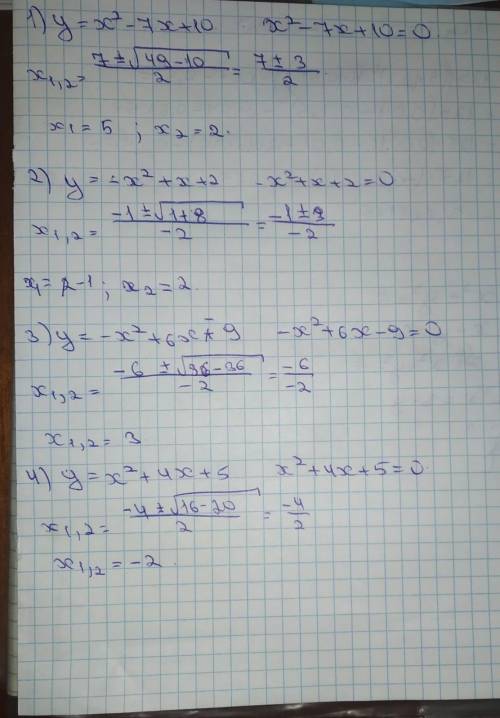 1) y = x² - 7x + 10   x² - 7x + 10 = 0
x₁,₂ = (7 ± √(49 - 10))/2 = (7 ± 3)/2
x₁ = 5 ; x₂ = 2.
2) y = -x² + x + 2   -x² + x + 2 = 0
x₁,₂ = (-1 ± √(1 + 8))/(-2) = (-1 ± 3)/(-2)
x₁ = -1 ; x₂ = 2.
3) y = -x² + 6x - 9   -x² + 6x - 9 = 0
x₁,₂ = (-6 ± √(36 - 36))/(-2) = (-6)/(-2)
x₁,₂ = 3
4) y = x² + 4x + 5   x² + 4x + 5 = 0
x₁,₂ = (-4 ± √(16 - 20))/2 = (-4)/2
x₁,₂ = -2.